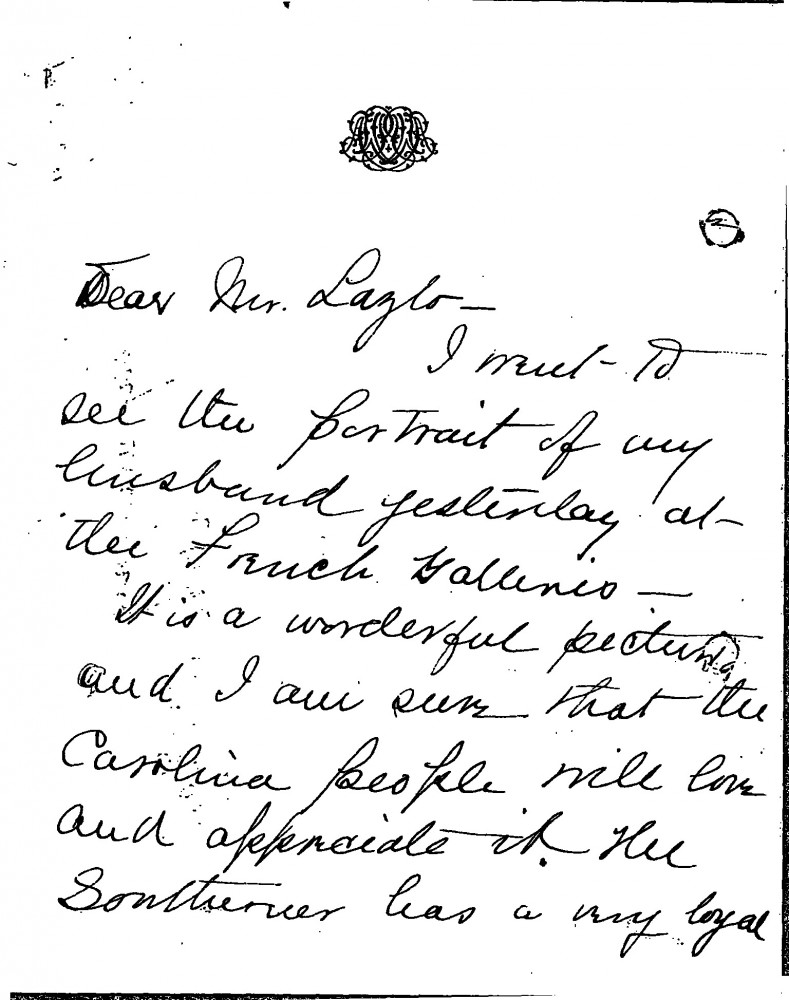 Dear Mr. Lazlo —
I went to
see the portrait of my
husband yesterday at
the French Galleries —
It is a wonderful picture
and I am sure that the
Carolina people will love
and appreciate it. The
Southerner has a very loyal